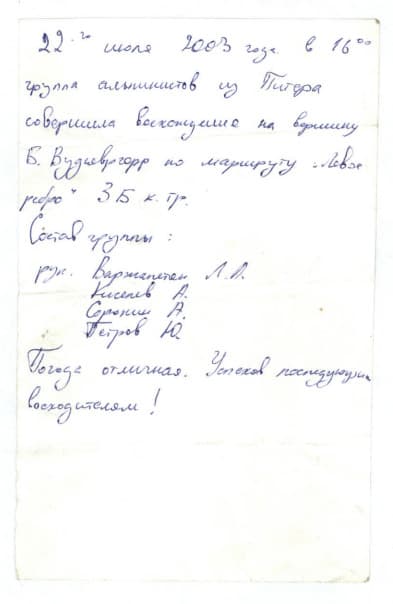 22-го июля 2003 года в 16⁰⁰
группа альпинистов из Питера
совершила восхождение на вершину
Б. Вудъявргорр по маршруту „Левое
ребро“ 3Б к. тр.
Состав группы:
рук. Варжапетян Л.А.
Киселев А.
Сорокин А.
Петров Ю.
Погода отличная. Успехов последующим
восходителям!